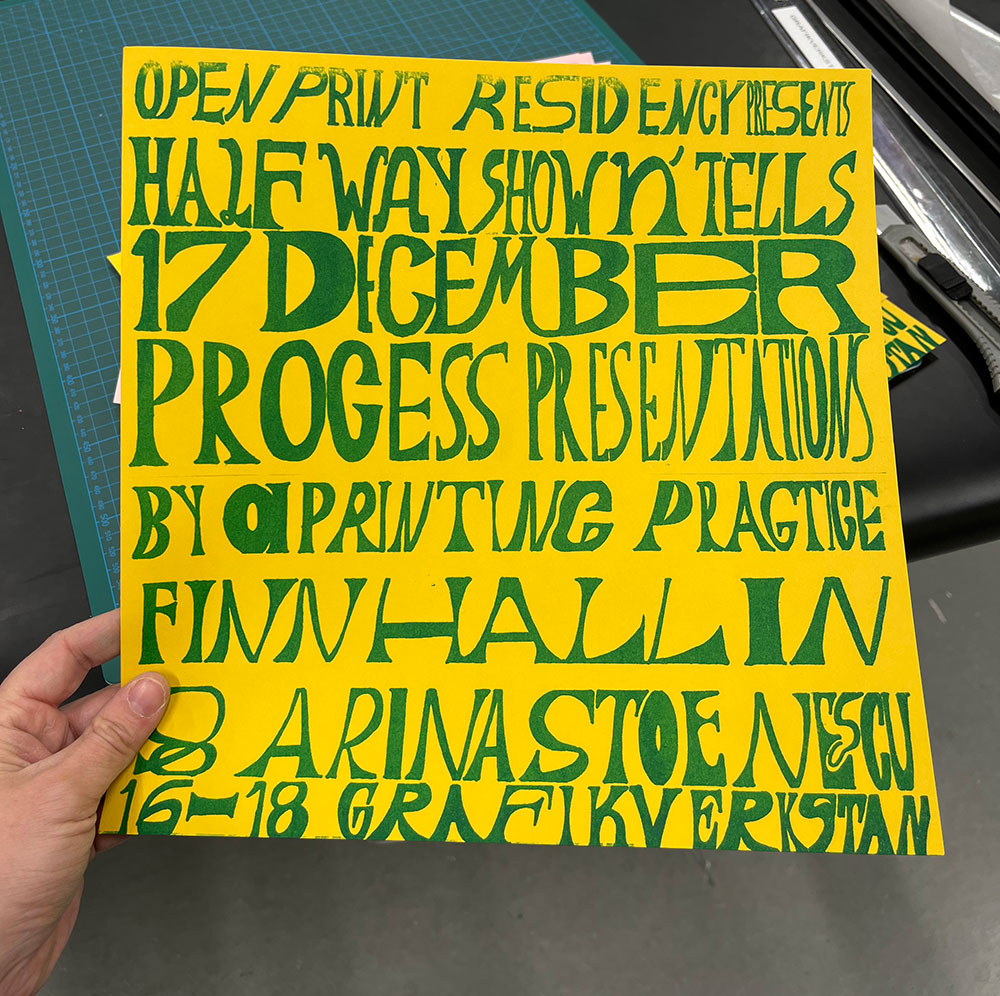 OPEN PRINT RESIDENCY PRESENTS
HALF WAY SHOW n' TELLS
17 DECEMBER
PROCESS PRESENTATIONS
BY a PRINTING PRACTICE
FINN HALLIN
& ARINA STOENESCU
16–18 GRAFIKVERKSTAN